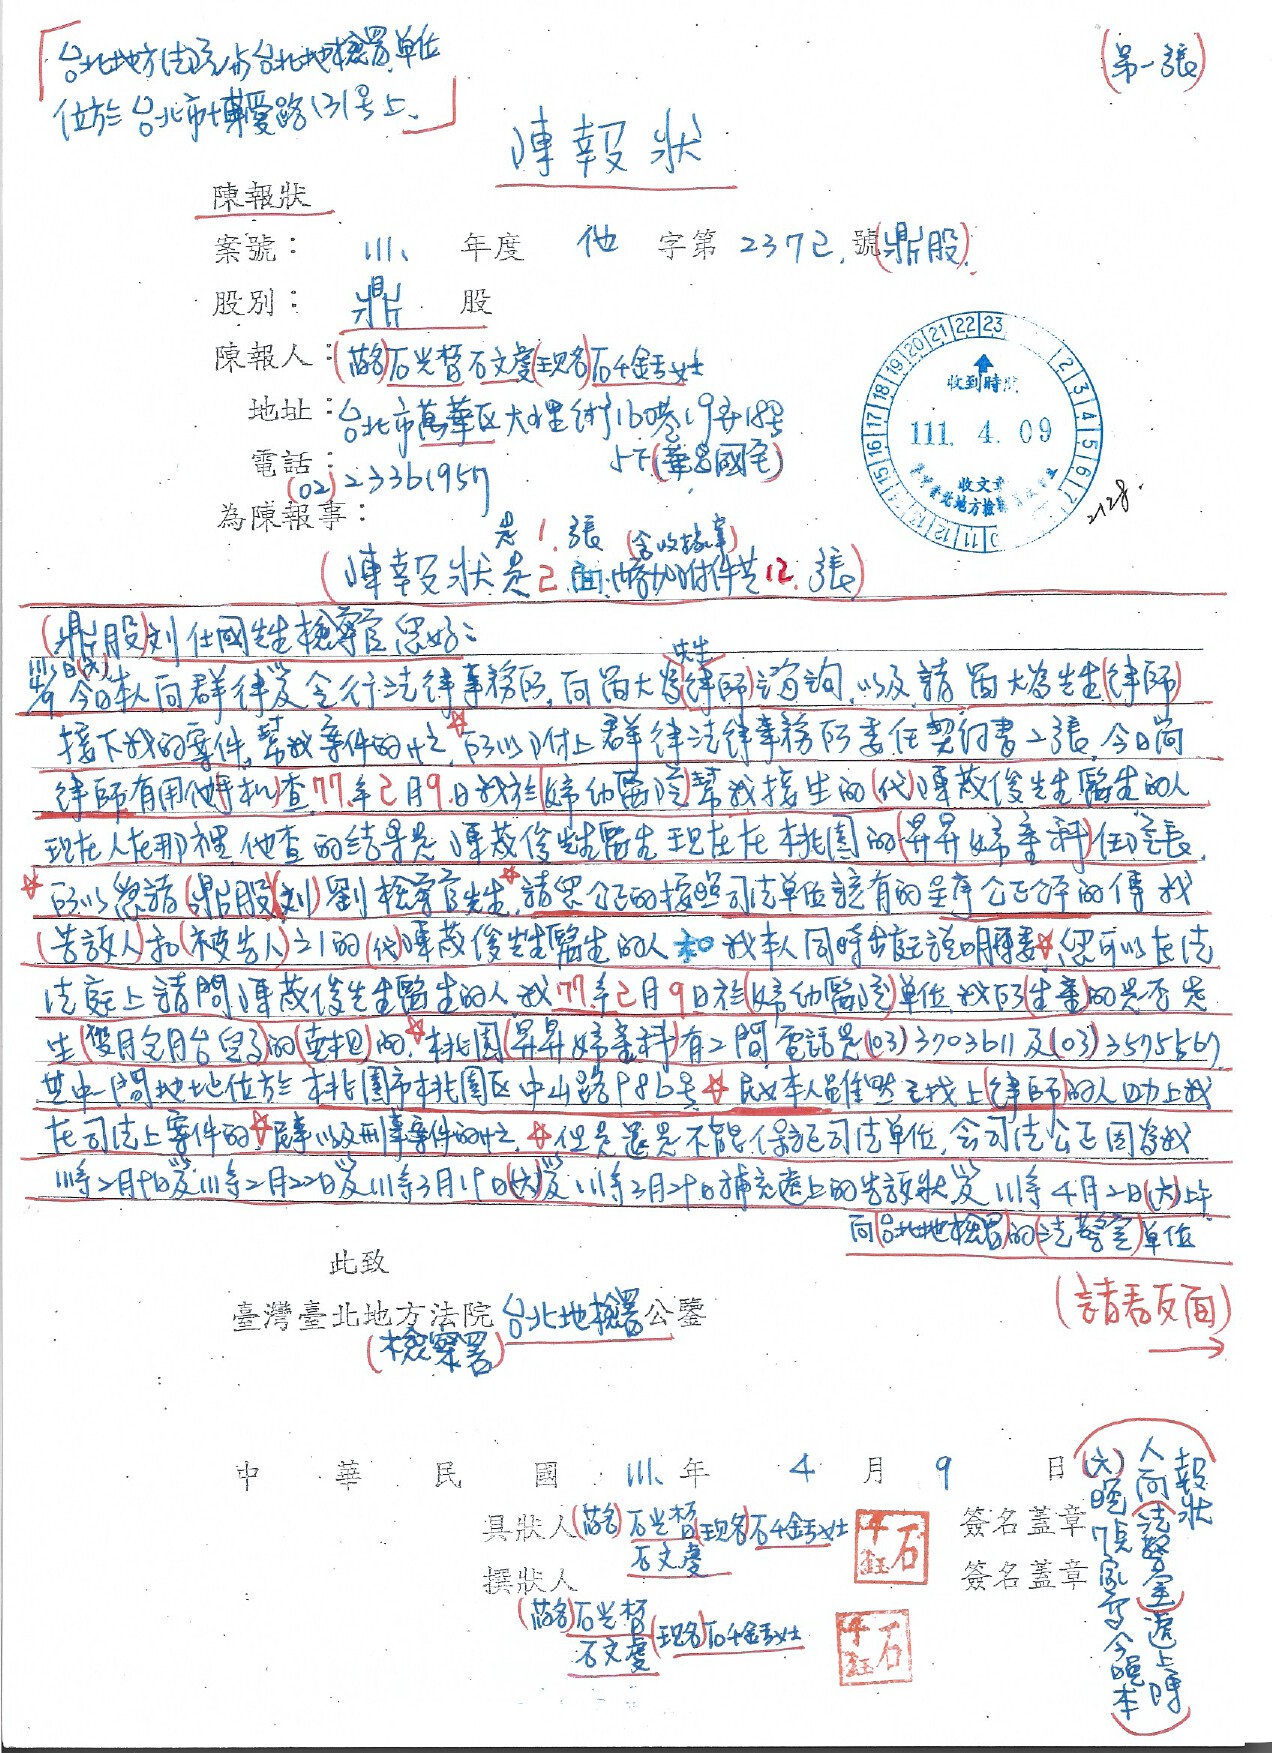 台北地方法院內台北地檢署單位
位於台北市博愛路131号上.
(第一張)
陳報狀
陳報狀
案號： 111. 年度 他 字第 2372. 號(鼎股).
股別： 鼎 股
陳報人：(舊名)石 石文慶(現名)石千鈺女士
地址：台北市萬華区大理街160巷19弄18号
(華昌國宅)
電話：(02)23361957
為陳報事：
收到時間
111. 4. 09
收文章
是1.張 (含收狀章)
(陳報狀是2.面.附件共12.張)
(鼎股)刘仕國先生檢察官您好：
今日本人向群律 法律事務所,向 大為先生(律師)諮詢.以及請 大為先生(律師)
接下我的案件,幫我案件的 ☆所以附上群律法律事務所委任契約書2張.今日
律師有用他手机查77.年2月9.日我於(婦幼醫院)幫我接生的 陳 俊先生醫生的人
現在人在那裡他查的結果是陳 俊先生醫生現在在桃園的(昇昇婦產科)任院長.
☆所以懇請(鼎股)(刘)劉檢察官先生.☆請您公正的按照司法單位該有的呈序公正公平的傳我
(告訴人)和(被告人)之1的 陳 俊先生醫生的人和我本人同時出庭說明 ☆您可以在法
法庭上請問陳 俊先生醫生的人我77年2月9日於(婦幼醫院)單位我所(生產)的是否是
生(雙胞胎台兒)的(真相)的.☆桃園(昇昇婦產科)有2間電話是(03)3703611及(03)3575567
其中一間地址位於桃園市桃園区中山路986号☆民女本人雖然已找上(律師)的人 上我
在司法上案件的☆民事以及刑事案件的 ☆但是還是不能保証司法單位.會司法公正因為我
111年2月9日及111年2月22日及111年3月19日(六)及111年3月29日補充遞上的告訴狀及111年4月2日(六)上午
向(台北地檢署)的(法警室)單位
此致
臺灣臺北地方法院 台北地檢署公鑒
(檢察署)
(請看反面)
→
中華民國 111.年 4 月 9 日
具狀人(舊名)石 石文慶(現名)石千鈺女士 簽名蓋章
石千鈺
撰狀人 簽名蓋章
(舊名)石 石文慶(現名)石千鈺女士
石千鈺
(六)晚 今晚本
人向(法警室)遞上陳
報狀